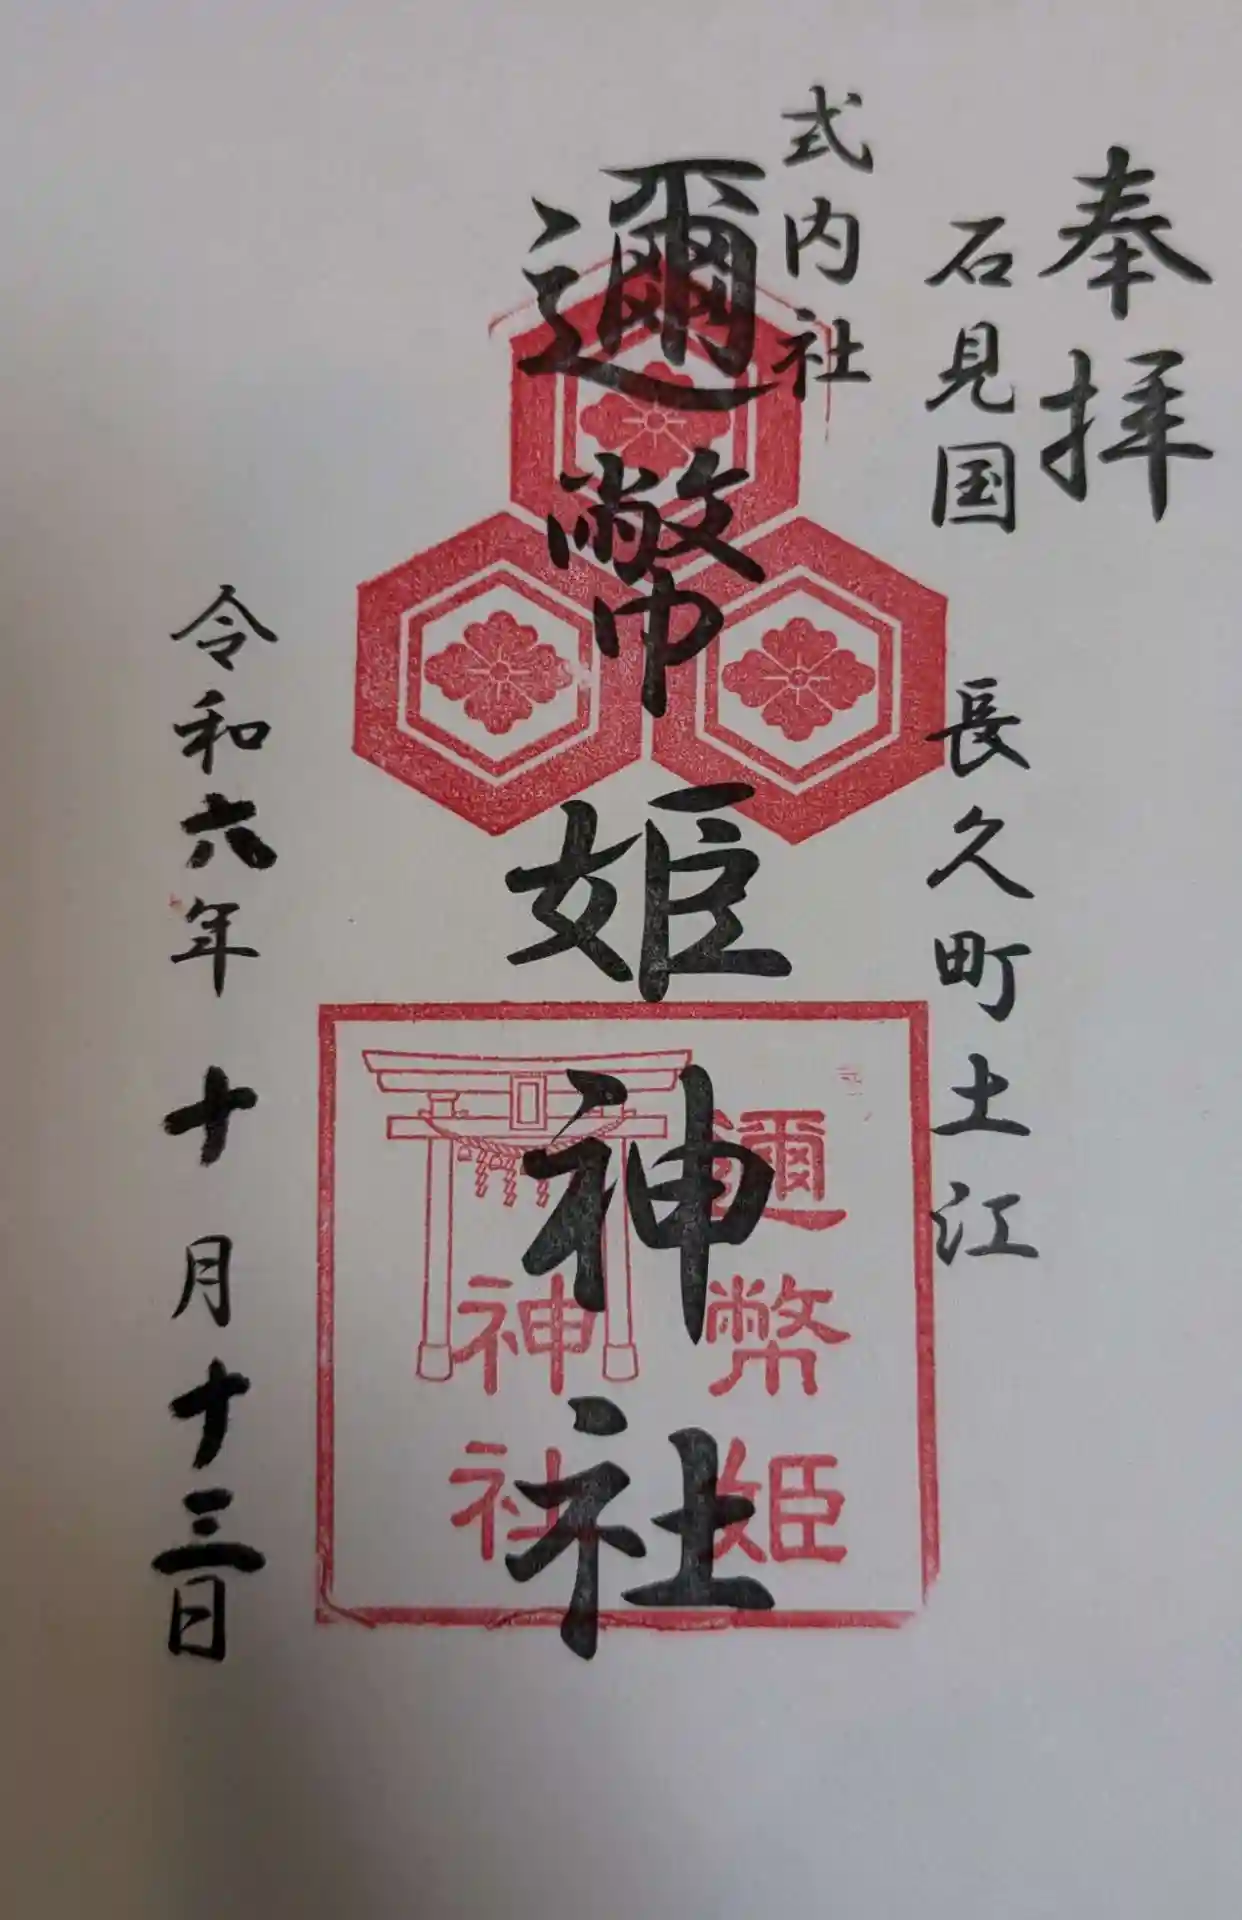 奉拝
石見国 長久町土江
式内社
邇幣姫神社
邇幣姫
神社
令和六年 十月十三日